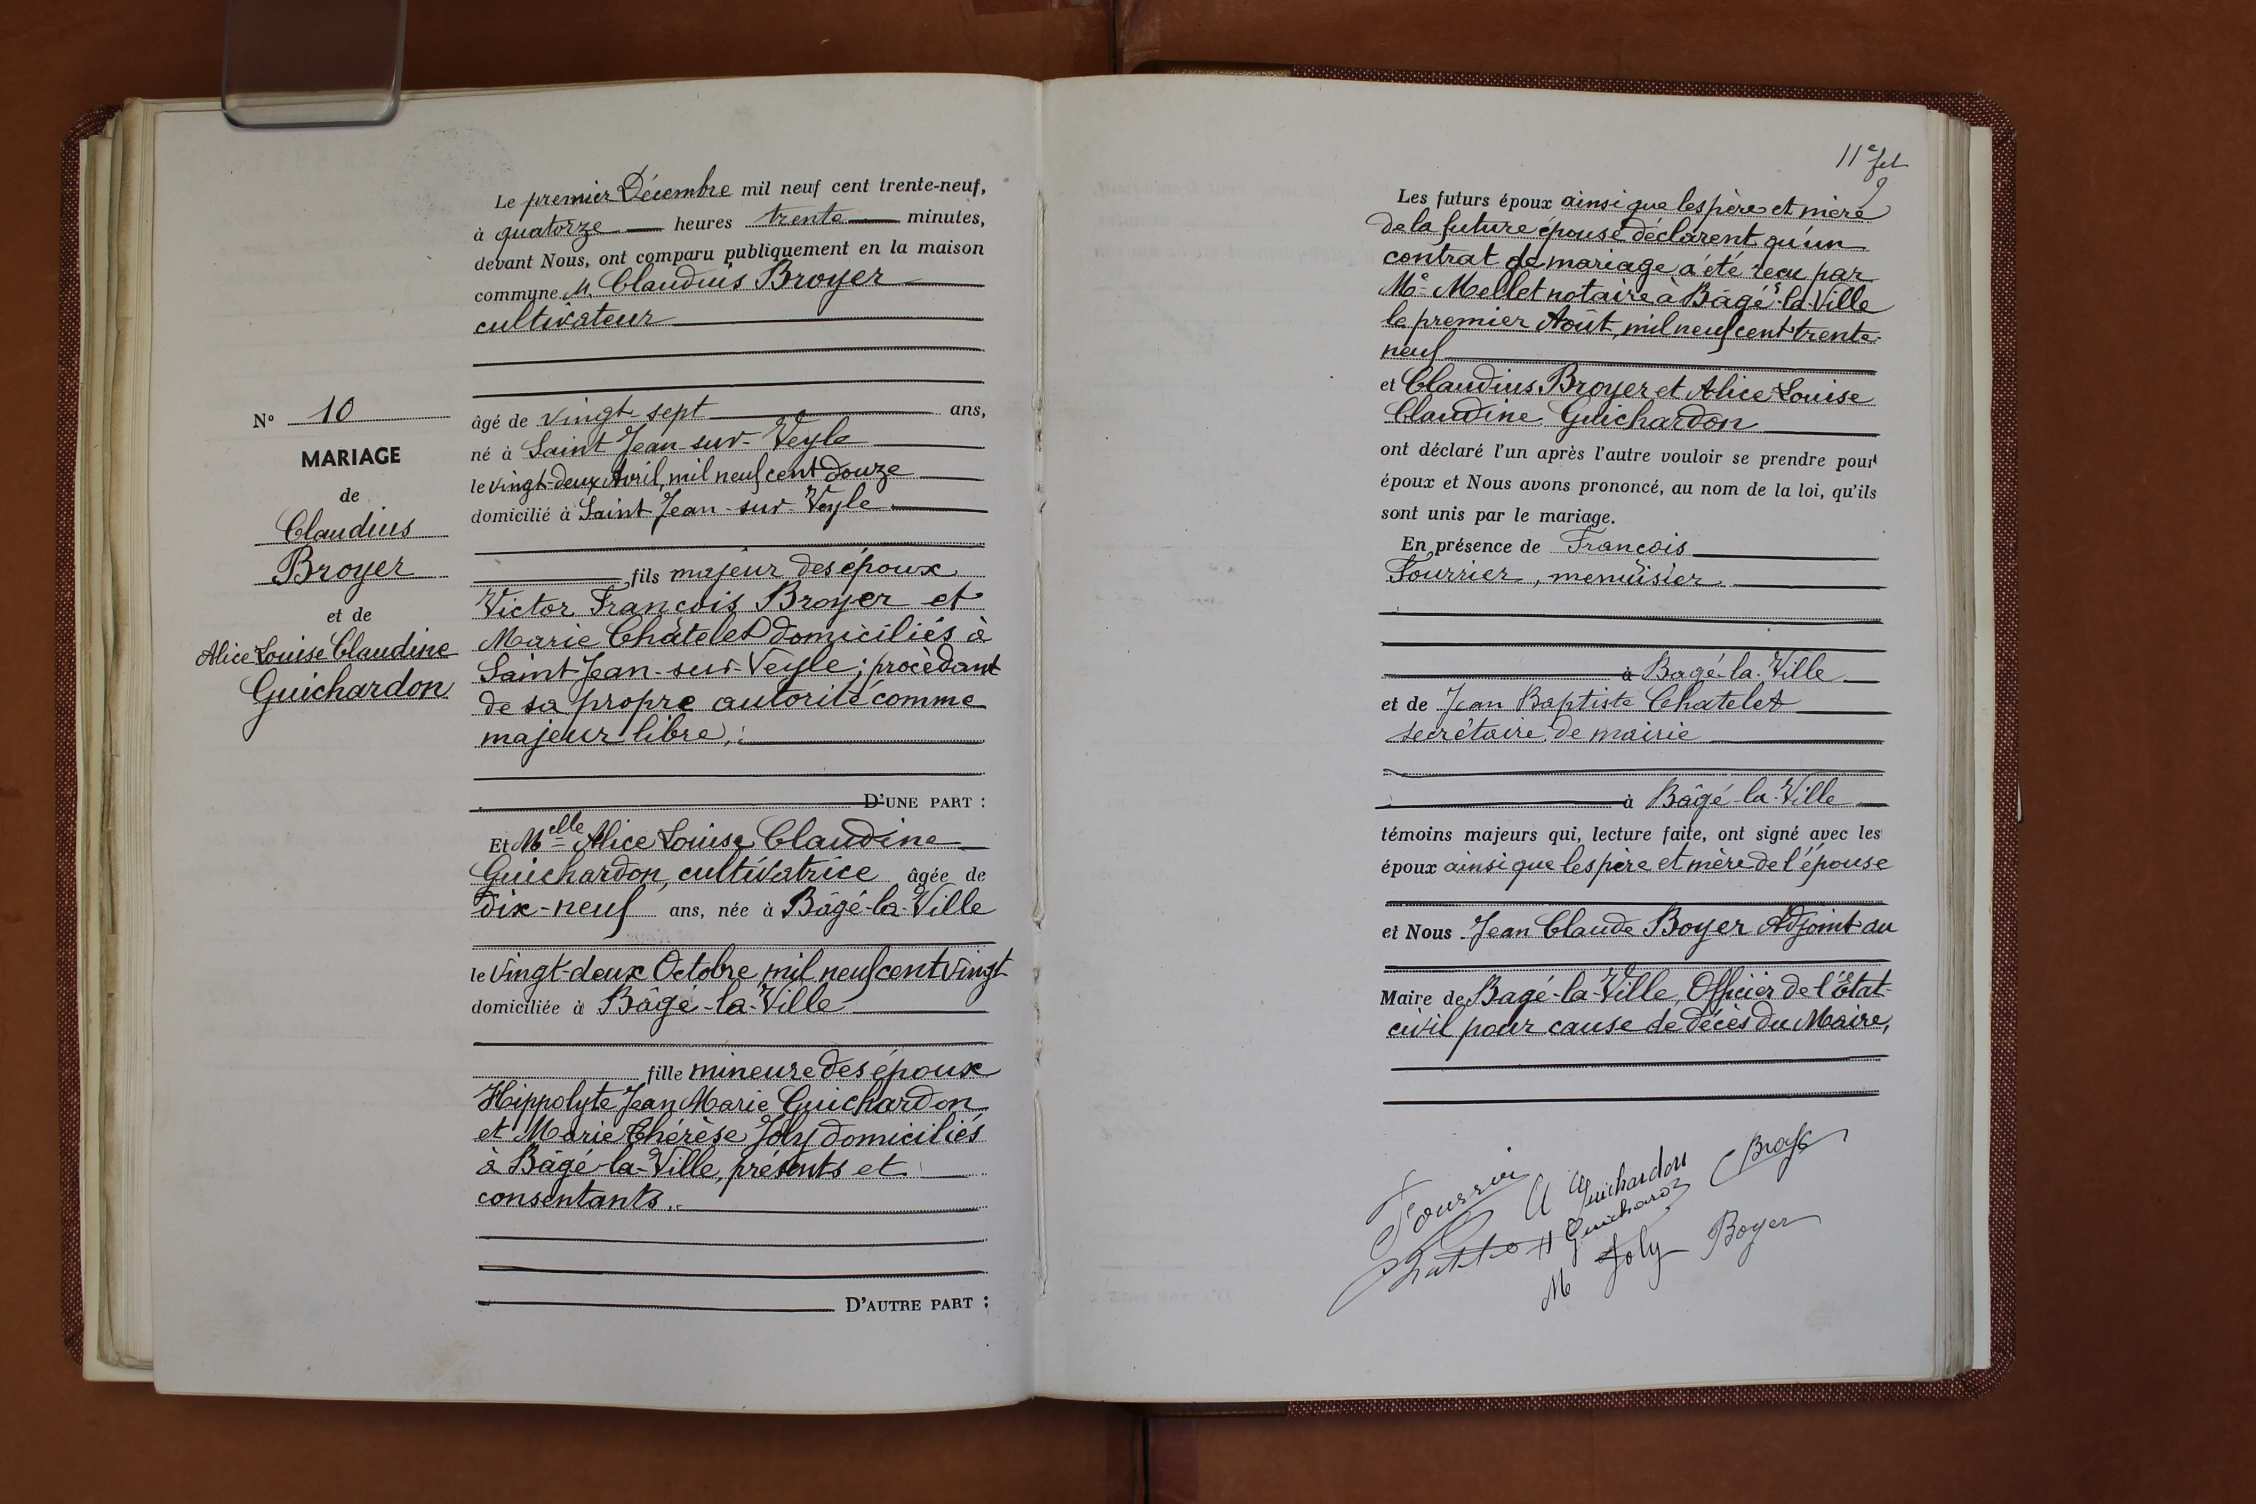 N° 10
MARIAGE
de
Claudius
Broyer
et de
Alice Louise Claudine
Guichardon
Le premier Décembre mil neuf cent trente-neuf,
à quatorze heures trente minutes,
devant Nous, ont comparu publiquement en la maison
commune M. Claudius Broyer
cultivateur
âgé de vingt-sept ans,
né à Saint Jean-sur-Veyle
le vingt-deux Avril, mil neuf cent douze
domicilié à Saint Jean-sur-Veyle
fils majeur des époux
Victor François Broyer et
Marie Châtelet domiciliés à
Saint-Jean-sur-Veyle; procèdant
de sa propre autorité comme
majeur libre,
D'UNE PART :
Et Melle Alice Louise Claudine
Guichardon, cultivatrice âgée de
dix-neuf ans, née à Bâgé-la-Ville
le vingt-deux Octobre, mil neuf cent vingt
domiciliée à Bâgé-la-Ville
fille mineure des époux
Hippolyte Jean Marie Guichardon
et Marie Thérèse Joly domiciliés
à Bâgé-la-Ville, présents et
consentants.
D'AUTRE PART :
11e fet
9
Les futurs époux ainsi que les père et mère
de la future épouse déclarent qu'un
contrat de mariage a été reçu par
Me Mellet notaire à Bâgé-la-Ville
le premier Août, mil neuf cent trente-
neuf
et Claudius Broyer et Alice Louise
Claudine Guichardon
ont déclaré l'un après l'autre vouloir se prendre pour
époux et Nous avons prononcé, au nom de la loi, qu'ils
sont unis par le mariage.
En présence de François
Fourrier, menuisier
à Bagé-la-Ville
et de Jean Baptiste Chatelet
secrétaire de mairie
à Bâgé-la-Ville
témoins majeurs qui, lecture faite, ont signé avec les
époux ainsi que les père et mère de l'épouse
et Nous Jean Claude Boyer Adjoint au
Maire de Bagé-la-Ville, Officier de l'État-
civil pour cause de décès du Maire,
Fourrier A Guichardon Broyer
H Guichardon
M Joly Boyer